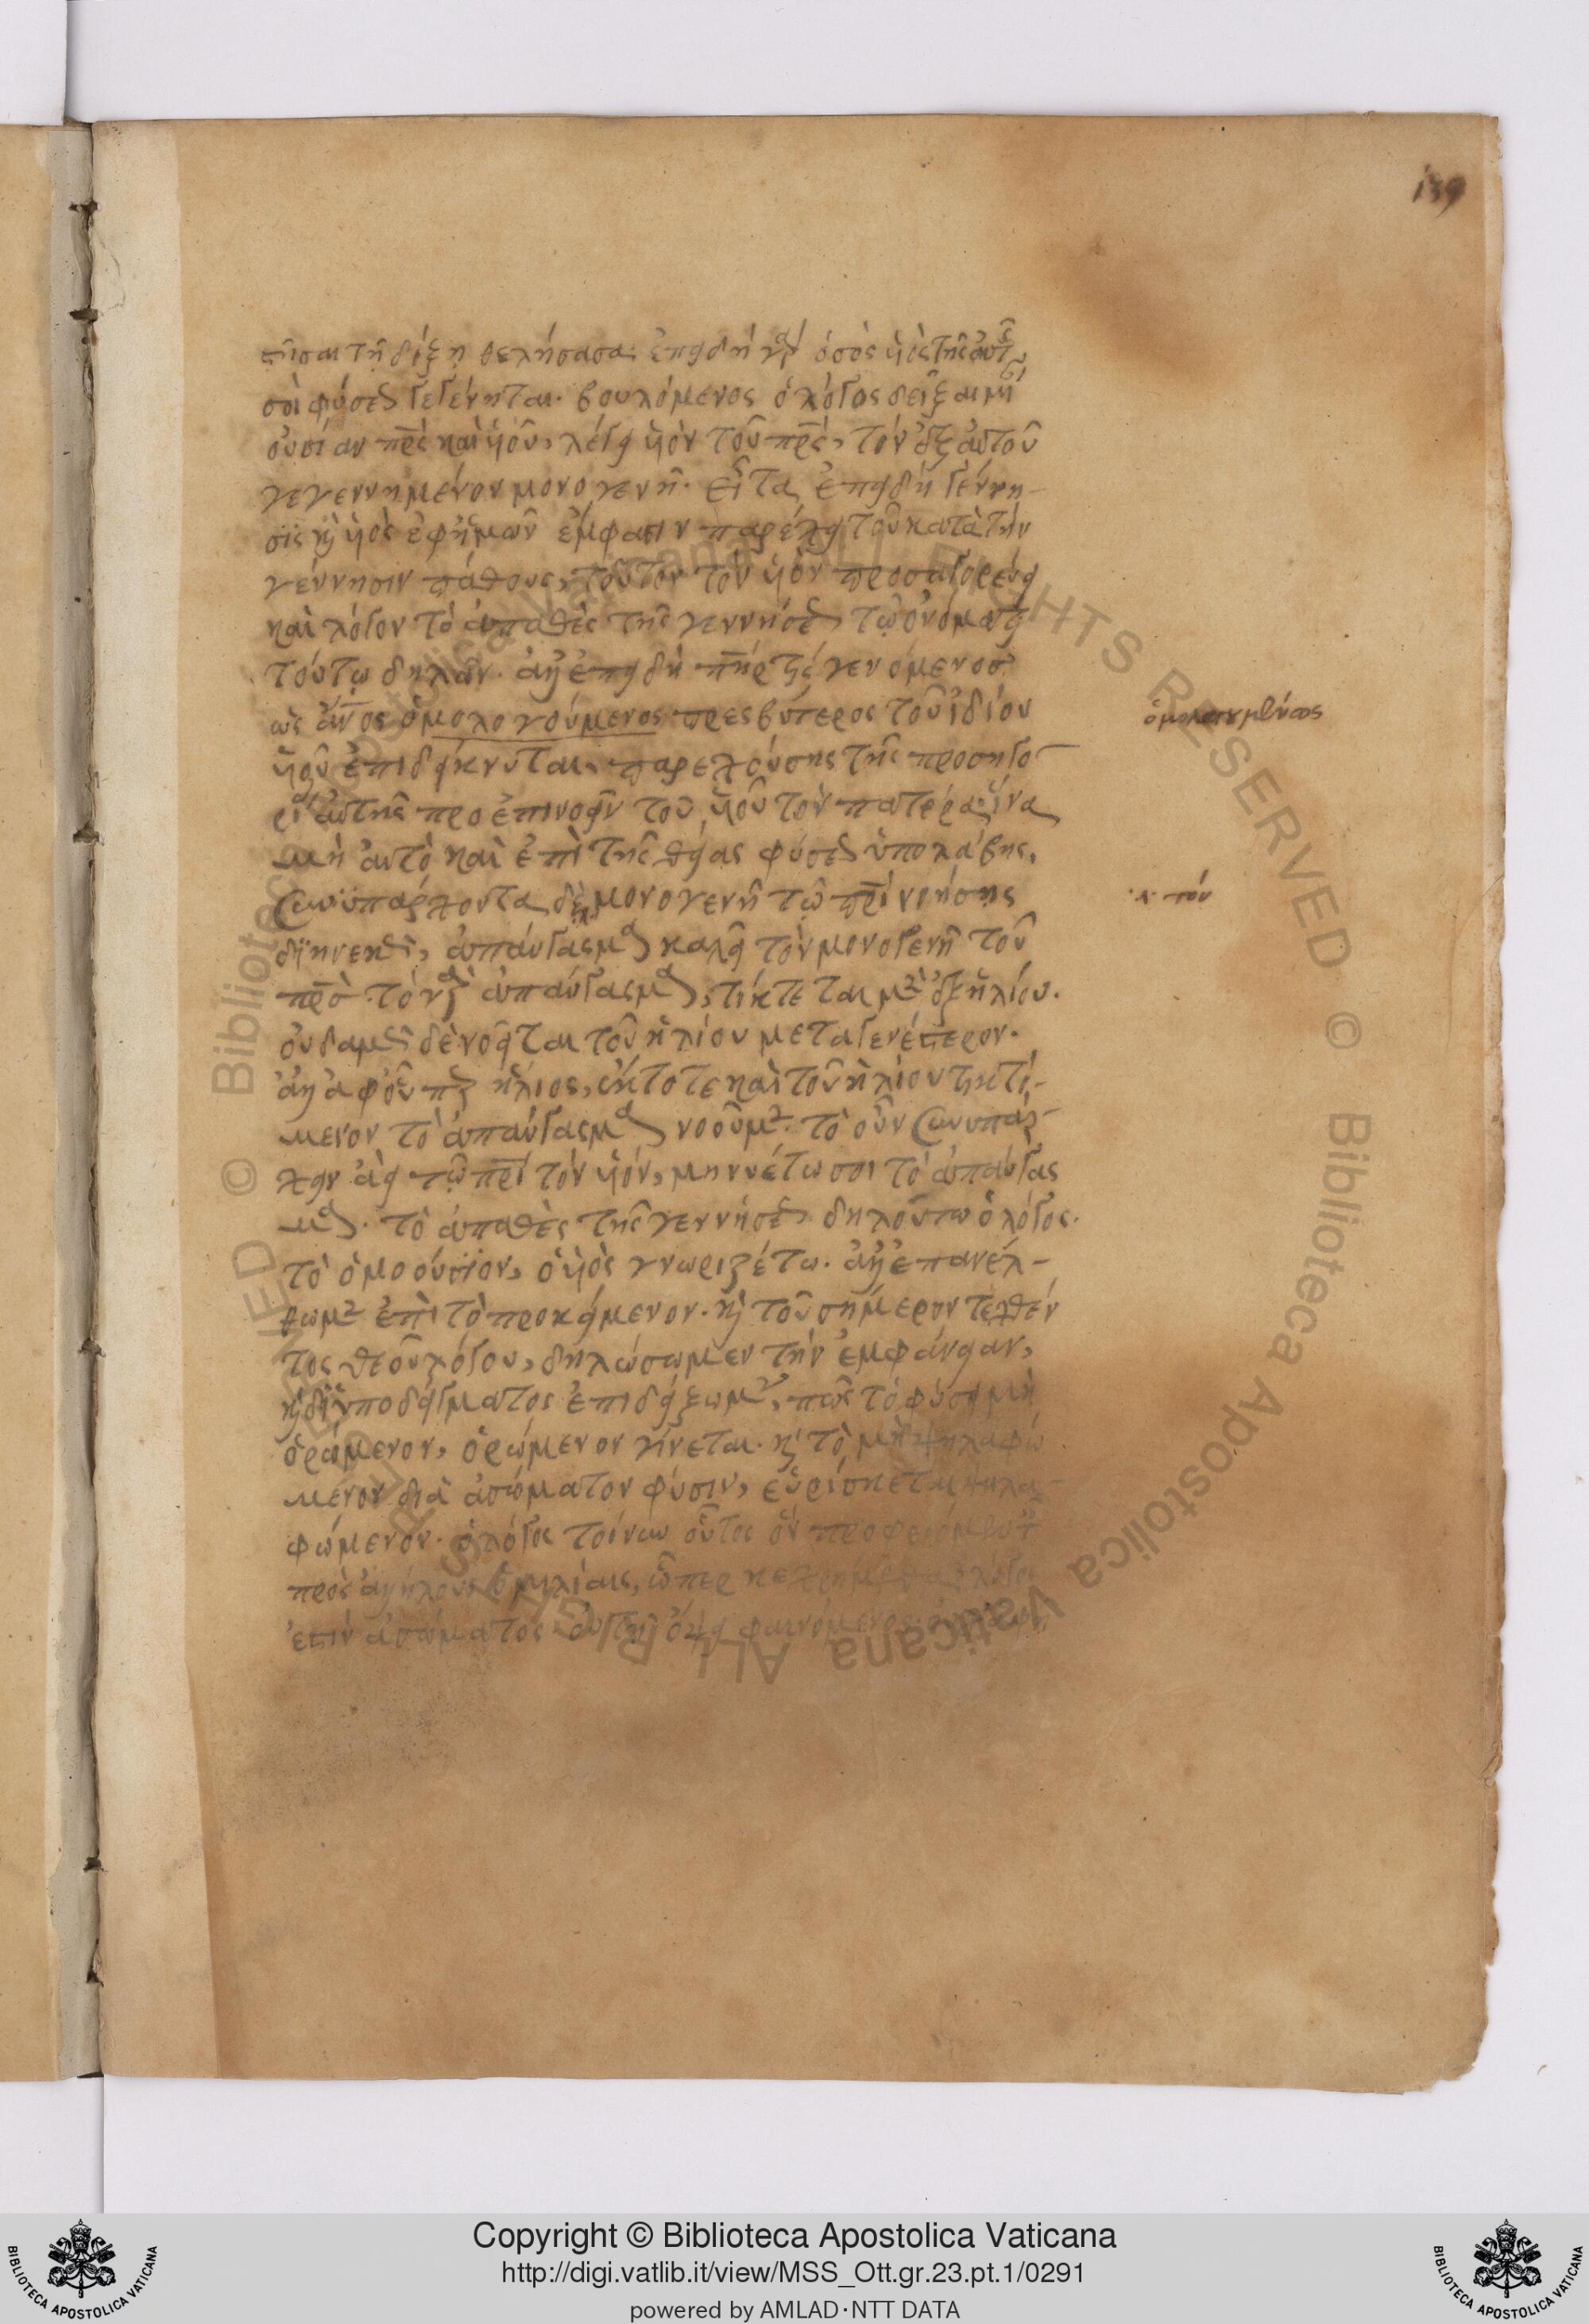 139
στῆσαι τῇ δόξῃ θελήσασα· ἐπειδὴ γὰρ ὁ σὸς υἱὸς τῆς αὐτῆς
σοὶ φύσεως γεγένηται. βουλόμενος ὁ λόγος δεῖξαι μίαν
οὐσίαν πρς καὶ υἱοῦ, λέγει υἱὸν τοῦ πρς, τὸν ἐξ αὐτοῦ
γεγεννημένον μονογενῆ. εἶτα ἐπειδὴ γέννη-
σις καὶ υἱὸς ἐφ ἡμῶν ἔμφασιν παρέχει τοῦ κατὰ τὴν
γέννησιν πάθους, τοῦτον τὸν υἱὸν προσαγορεύει
καὶ λόγον τὸ ἀπαθὲς τῆς γεννήσεως τῷ ὀνόματι
τούτῳ δηλῶν. ἀλλ ἐπειδὴ πήρ τις γενόμενος
ὡς ἄνος ὁμολογούμενος πρεσβύτερος τοῦ ἰδίου
ὁμολογουμένως
υἱοῦ ἐπιδείκνυται, παρεχούσης τῆς προσηγο-
ρίας αὐτῆς προεπινοεῖν τοῦ υἱοῦ τὸν πατέρα· ἵνα
μὴ αὐτὸ καὶ ἐπὶ τῆς θείας φύσεως ὑπολάβης,
συνυπάρχοντα δὲ μονογενῆ τῷ πρι νοήσης
λ τὸν
διηνεκῶς, ἀπαύγασμα καλεῖ τὸν μονογενῆ τοῦ
πρσ. τὸ γὰρ ἀπαύγασμα, τίκτεται μὲν ἐξ ἡλίου.
οὐδαμῶς δὲ νοεῖται τοῦ ἡλίου μεταγενέστερον.
ἀλλ ἀφ οὗ περ ἥλιος, ἐκτότε καὶ τοῦ ἡλίου τικτό-
μενον τὸ ἀπαύγασμα νοοῦμεν. τὸ οὖν συνυπάρ-
χειν ἀεὶ τῷ πρι τὸν υἱόν, μηνυέτω σοι τὸ ἀπαύγασ
μα. τὸ ἀπαθὲς τῆς γεννήσεως δηλούτω ὁ λόγος.
τὸ ὁμοούσιον, ὁ υἱὸς γνωριζέτω. ἀλλ ἐπανέλ-
θωμεν ἐπὶ τὸ προκείμενον. καὶ τοῦ σήμερον τεχθέν
τος θεοῦ λόγου, δηλώσωμεν τὴν ἐμφάνειαν,
καὶ δι ὑποδείγματος ἐπιδείξωμεν, πῶς τὸ φύσει μὴ
ὁρώμενον, ὁρώμενον γίνεται. καὶ τὸ μὴ ψηλαφώ
μενον διὰ ἀσώματον φύσιν, εὑρίσκεται ψηλα-
φώμενον. ὁ λόγος τοίνυν οὗτος ὃν προφερόμεθα
πρὸς ἀλλήλους ὁμιλίαις, ᾧπερ κεχρήμεθα λόγῳ
ἐστὶν ἀσώματος οὔτε ὄψει φαινόμενος
Copyright © Biblioteca Apostolica Vaticana
http://digi.vatlib.it/view/MSS_Ott.gr.23.pt.1/0291
powered by AMLAD·NTT DATA
BIBLIOTECA APOSTOLICA VATICANA
BIBLIOTECA APOSTOLICA VATICANA